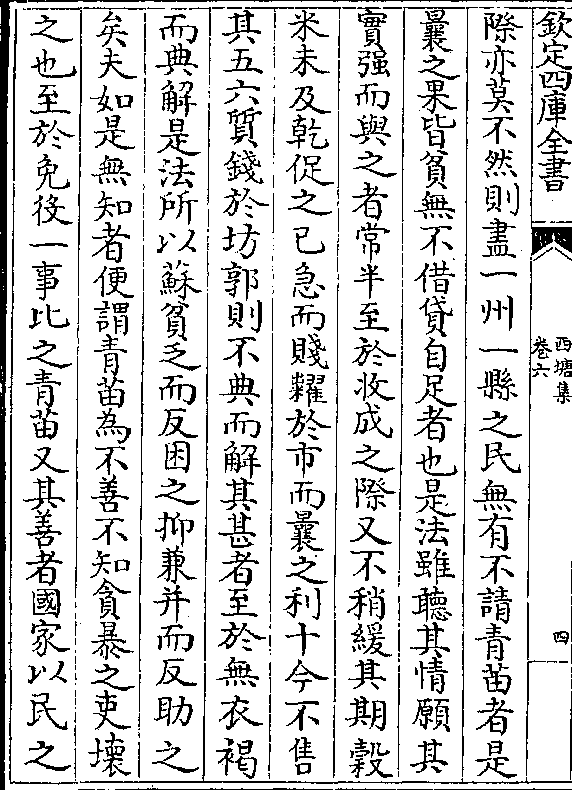 欽定四庫全書
西塘集
卷六
四
際亦莫不然則盡一州一縣之民無有不請青苗者是
曩之果皆貧無不借貸自足者也是法雖聽其情願其
實強而與之者常半至於收成之際又不稍緩其期穀
米未及乾促之已急而賤糶於市而曩之利十今不售
其五六質錢於坊郭則不典而解其甚者至於無衣褐
而典解是法所以蘇貧乏而反困之抑兼并而反助之
矣夫如是無知者便謂青苗為不善不知貪暴之吏壞
之也至於免役一事比之青苗又其善者國家以民之